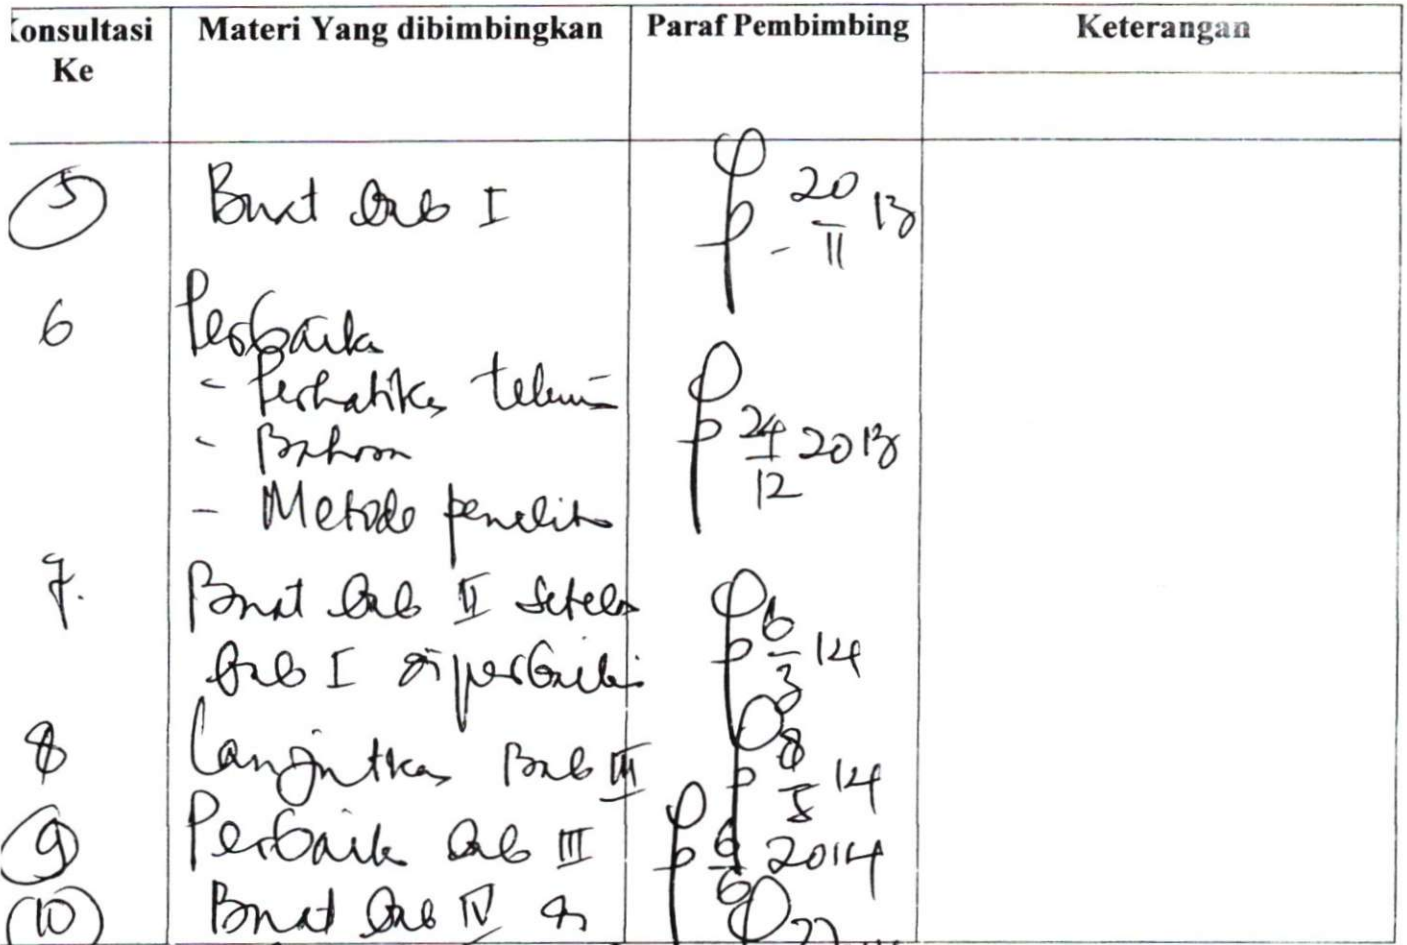 Konsultasi Ke Materi Yang dibimbingkan Paraf Pembimbing Keterangan
5 Buat bab I 20/11 13
6 Perbaiki
- Perhatikan
- Bahasa 24/12 2013
- Metode peneliti
7. Buat bab II setelah 6/3 14
bab I diperbaiki
8 Lanjutkan Bab III 8/5 14
9 Perbaiki bab III 6/6 2014
10 Buat bab IV